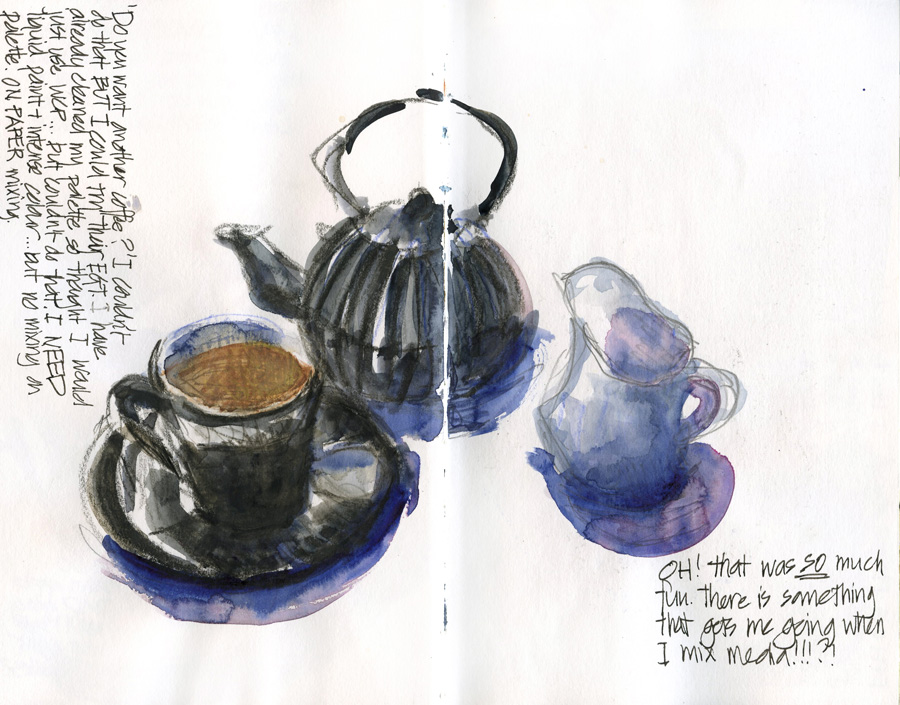 'Do you want another coffee?' I couldn't
do that BUT I could try their EGT. I have
already cleaned my palette so thought I would
just use WCP... but couldn't do that. I NEED
liquid paint + intense colour... but no mixing on
palette. ON PAPER mixing.
OH! that was SO much
fun. there is something
that gets me going when
I mix media!!!?!